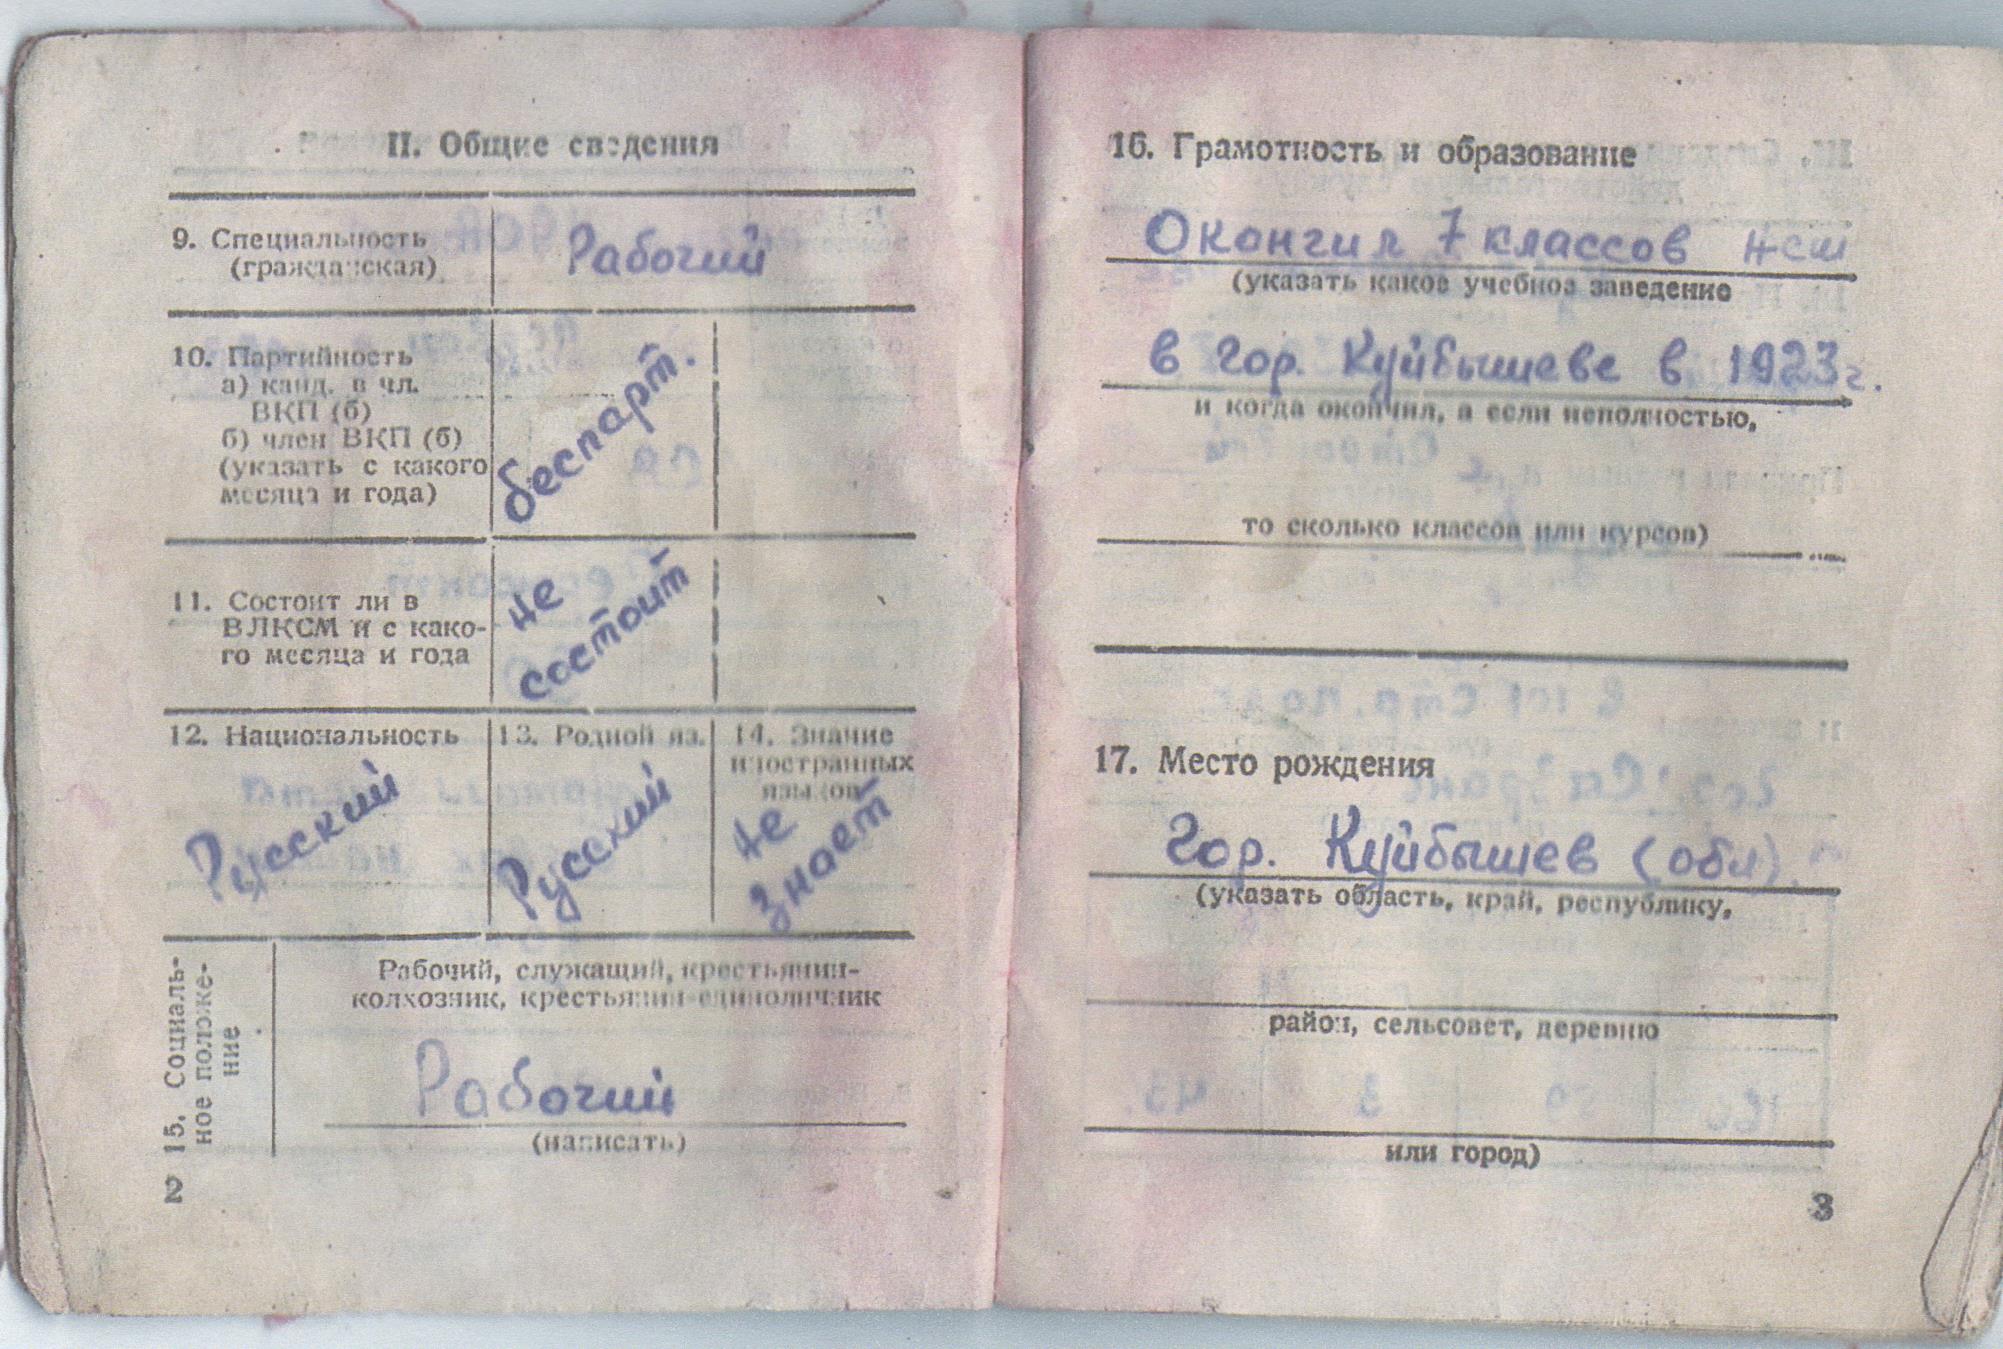 II. Общие сведения
9. Специальность
(гражданская)
Рабочий
10. Партийность
а) канд. в чл.
ВКП (б)
б) член ВКП (б)
(указать с какого
месяца и года)
беспарт.
11. Состоит ли в
ВЛКСМ и с како-
го месяца и года
не
состоит
12. Национальность
Русский
13. Родной яз.
Русский
14. Знание
иностранных
языков
не
знает
15. Социаль-
ное положе-
ние
Рабочий, служащий, крестьянин-
колхозник, крестьянин-единоличник
Рабочий
(написать)
2
16. Грамотность и образование
Окончил 7 классов нсш
(указать какое учебное заведение
в гор. Куйбышеве в 1923г.
и когда окончил, а если неполностью,
то сколько классов или курсов)
17. Место рождения
Гор. Куйбышев (обл).
(указать область, край, республику,
район, сельсовет, деревню
или город)
3